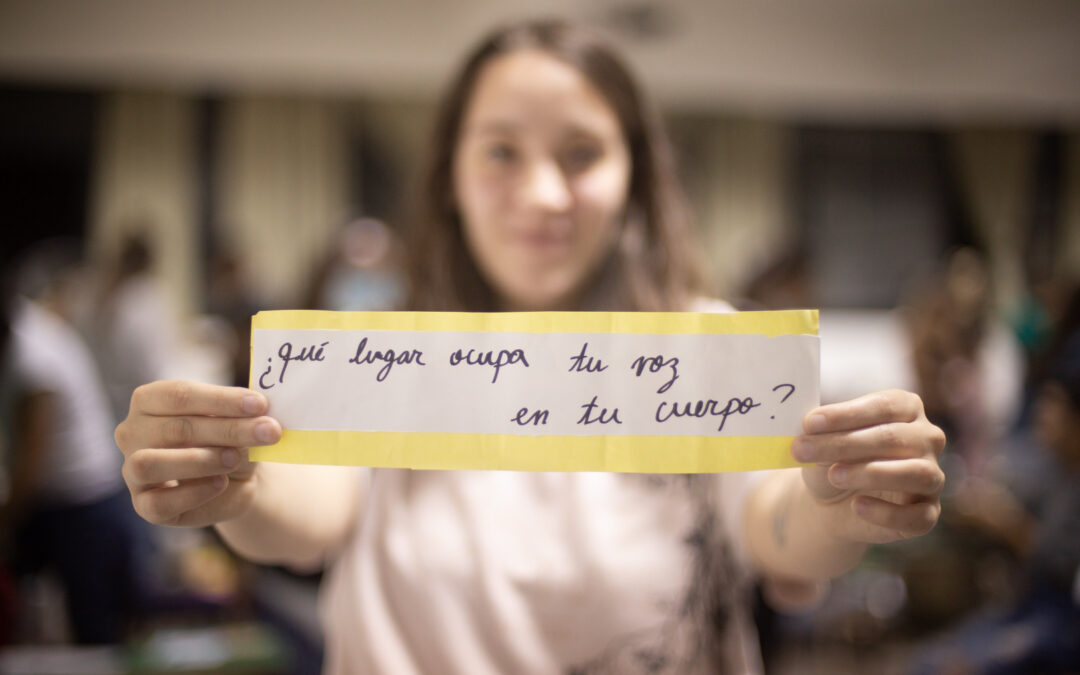 ¿qué lugar ocupa tu voz
en tu cuerpo?